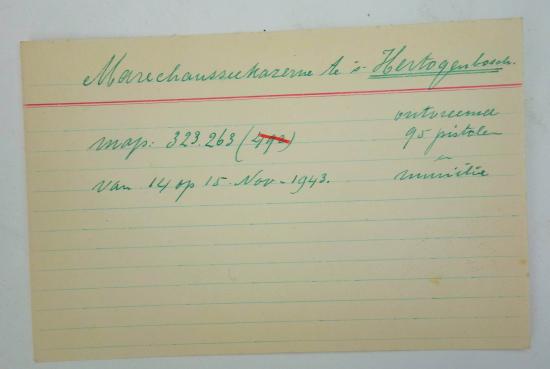 Marechausseekazerne te 's-Hertogenbosch.
ontvreemd
map: 323.263 (492) 95 pistolen
en
van 14 op 15 Nov- 1943. munitie